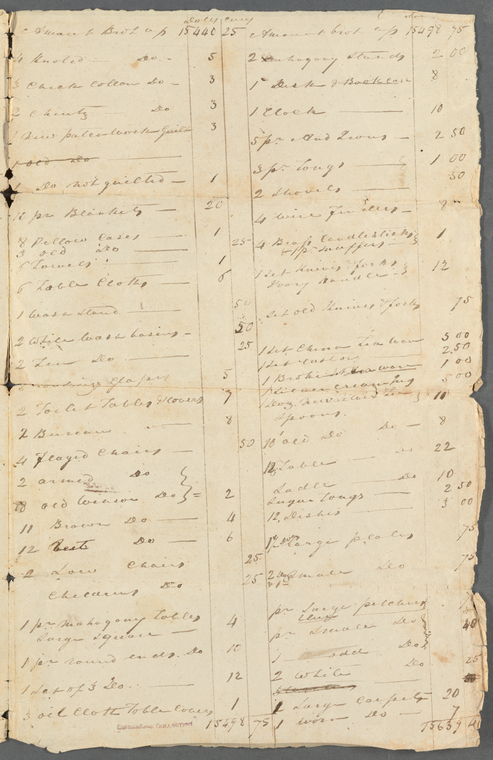 Dolls Cents
Amount Brot up 15440 25
4 Knoted Do 5
3 Check Cotton Do 3
2 Chintz Do 3
1 New patchwork Quilt 3
1 Old Do
1 Do not quilted 1
10 pr Blankets 20
8 Pellow Cases 1
3 old Do 25
Towels 1
6 Table Cloths 6
1 Wash Stand 50
2 White Wash basins 50
2 Tin Do 25
Glases 5
2 Toilet Tables & Covers 7
2 Bureaus 8
4 Flaged Chairs 50
2 armed Do
old Windsor Do 2
11 Brown Do 4
12 best Do 6
2 Low Chairs 25
Childrens Do 25
1 pr Mahogany Tables
large square 4
1 pr round ends Do 10
1 Set of 3 Do 12
3 oil Cloth Table Covers 1
15498 75
Amount brot up 15498 75
2 Mahogany Stands 2 00
1 Desk & Bookcase 8
1 Clock 10
5 pr And Irons 2 50
3 pr Tongs 1 00
2 Shovels 50
4 Wire Fenders 8
4 Brass Candlesticks
& 1 pr Snuffers 1
1 Set Knives & forks
Ivory handle 12
Set old Knives & forks 75
1 Set China Tea ware 5 00
1 Set 2 50
1 Broken ware 1 00
5 00
1 Doz
Spoons 10
10 old Do Do 8
12 Table Do 22
Ladle Do 10
Sugar Tongs 2 50
12 Dishes 3 00
1 doz large plates 75
2 doz Small Do 75
pr Large pitchers
pr Smalle Do 40
1 odd Do
2 White Do 25
1 Large Carpet 20
1 worn Do 7
15659 40